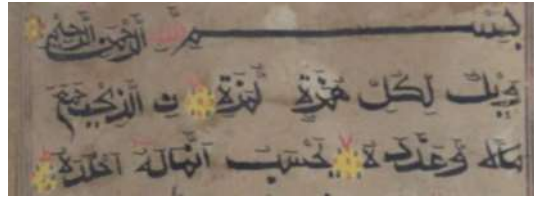 بسم الله الرحمن الرحيم
ويل لكل همزة لمزة ۝ ن الذي جمع
مالا وعدده ۝ يحسب ان ماله اخلده ۝